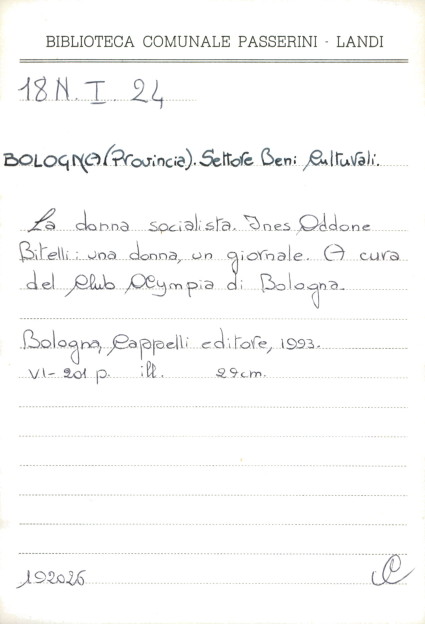 BIBLIOTECA COMUNALE PASSERINI - LANDI
18N. I. 24
BOLOGNA (Provincia). Settore Beni Culturali.
La donna socialista. Ines Oddone
Bitelli: una donna, un giornale. A cura
del Club Olympia di Bologna.
Bologna, Cappelli editore, 1993.
VI-201 p. ill. 29cm.
192026